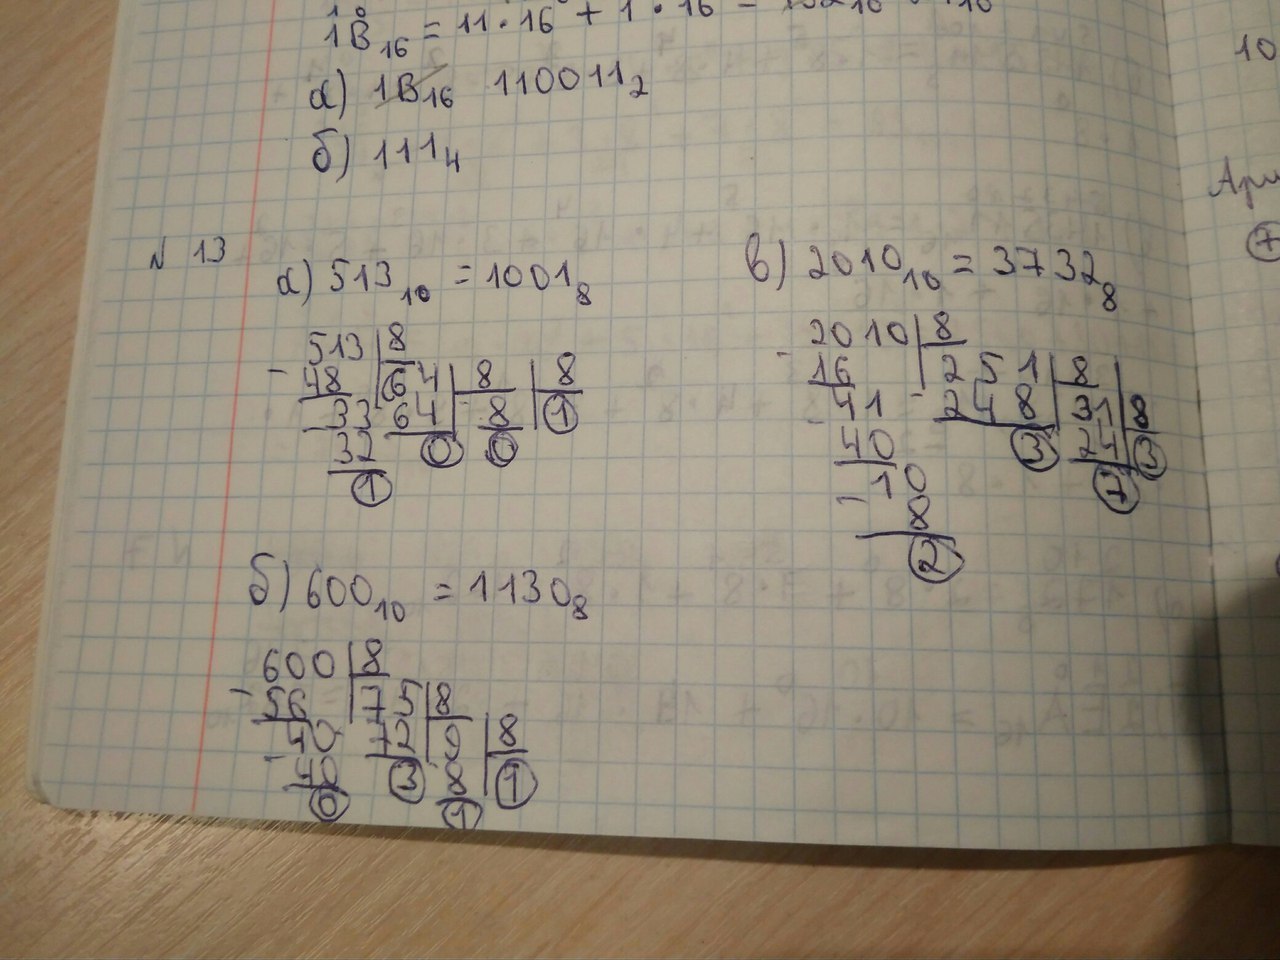 1B₁₆ = 11·16⁰ + 1·16
а) 1B₁₆ 110011₂
б) 111₄
№ 13
а) 513₁₀ = 1001₈
513 8
- 48 64 8 8
33 64 8 1
32 0 0
1
в) 2010₁₀ = 3732₈
- 2010 8
16 251 8
41 - 248 31 8
40 3 24 3
- 10 7
8
2
б) 600₁₀ = 1130₈
- 600 8
56 75 8
- 40 72 9 8
40 3 8 1
0 1
10